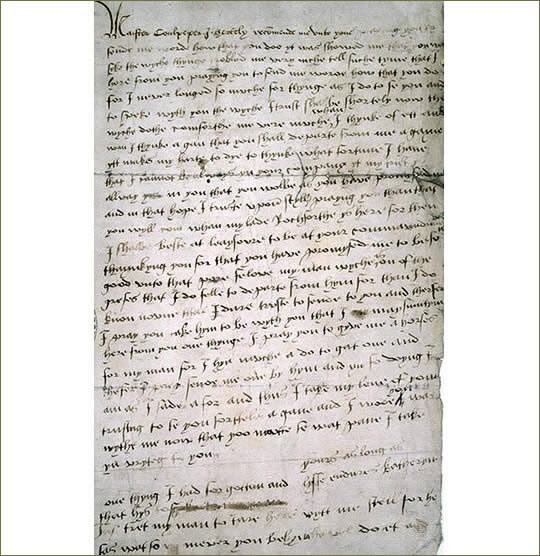 Master Coulpeper I hertely recomende me unto youe praying you to
sende me worde how that you doo yt was showed me that you was
seke the wyche thynge trobled me very muche tell suche tyme that I
here from you praying you to send me worde how that you do
for I never longed so muche for thynge as I do to se you and
to speke wyth you the wyche I trust shal be shortely now the
wyche dothe comforthe me very muche whan I thynk of ett and
wan I thynke agan that you shall departe from me agane
ytt makes my harte to dye to thynke what fortune I have
that I cannot be always yn your company yt my trust ys
allway in you that you wolbe as you have promysed me
and in that hope I truste upon styll praying you than that
you wyll com whan my lade Rochforthe ys here for then
I shalbe beste at leaysoure to be at your commarendmant
thaynkyng you for that you have promysed me to be so
good unto that pore felowe my man wyche ys on of the
grefes that I do felle to departe from hym for than I do
know noone that I dare truste to sende to you and therfor
I pray you take hym to be wyth you that I may sumtym
here from you one thynge I pray you to gyve me a horse
for my man for I hyd muche a do to gat one and
thefer I pray sende me one by hym and yn so doying I
am as I sade afor and thus I take my leve of you
trusting to se you shorttele agane and I wode you war
wythe me now that yoo maitte se wat pane I take
yn wryteg to you
yours as long as
lyffe endures Katheryn
one thyng I had forgotten and
that hys to
tret my man to tare here wytt me stell for he
sas wat so ever you bed hym he wel do et and